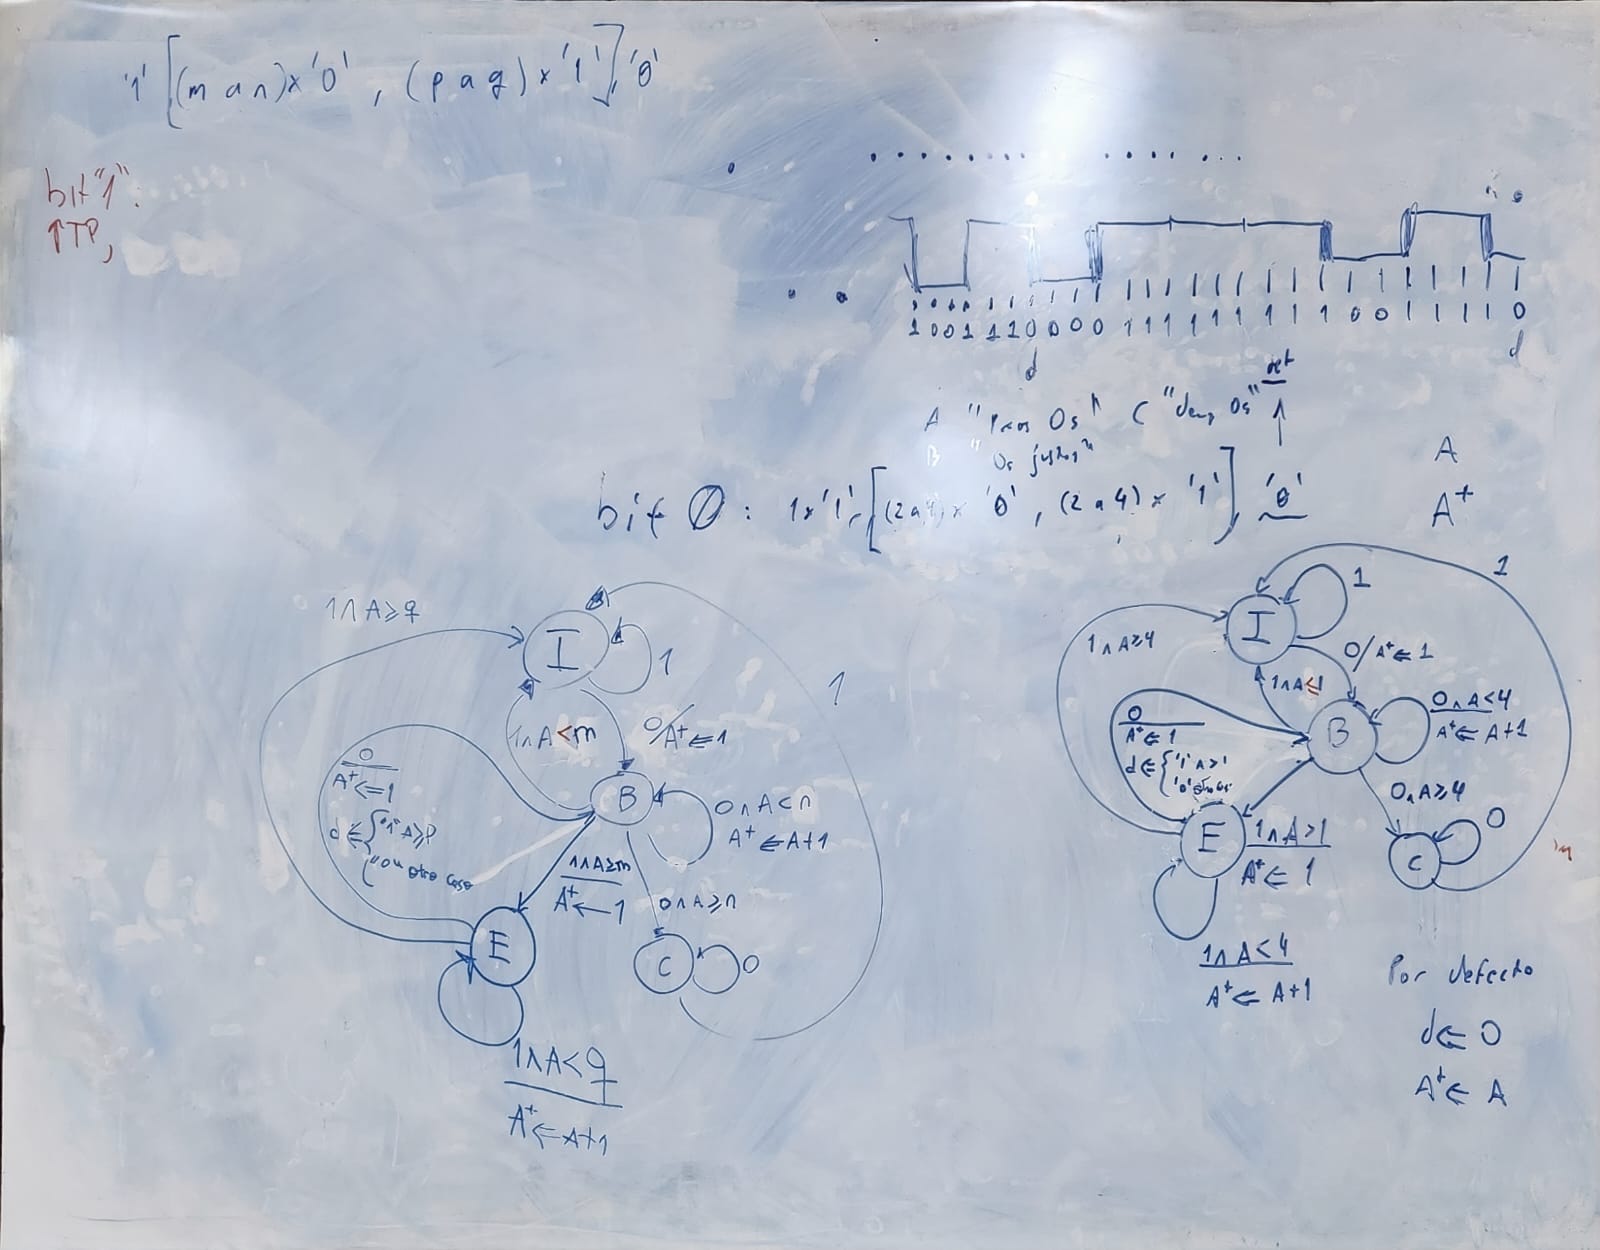 '1' [(m a n)x'0' , (p a q)x'1'] '0'
bit"1":
↑TP,
1 0 0 1 1 1 0 0 0 0 1 1 1 1 1 1 1 1 0 0 1 1 1 1 0
d d
A " 0s" C
B "0s justos"
bit 0: 1x'1', [(2a4)x '0' , (2a4)x '1'] '0'
A
A⁺
1∧A≥q
I
1
1∧A<m
0/A⁺⇐1
1
0
A⁺⇐1
d⇐{"1" A≥p
"0" otro caso
B
0∧A<n
A⁺⇐A+1
1∧A≥m
A⁺←1
0∧A≥n
E
C
0
1∧A<q
A⁺⇐A+1
1
I
1
1∧A≥4
0/A⁺⇐1
1∧A≤1
0
A⁺⇐1
d⇐{'1' A>1
'0' otro caso
B
0∧A<4
A⁺⇐A+1
0∧A≥4
E
1∧A>1
A⁺⇐1
C
0
1∧A<4
A⁺⇐A+1
Por defecto
d⇐0
A⁺⇐A